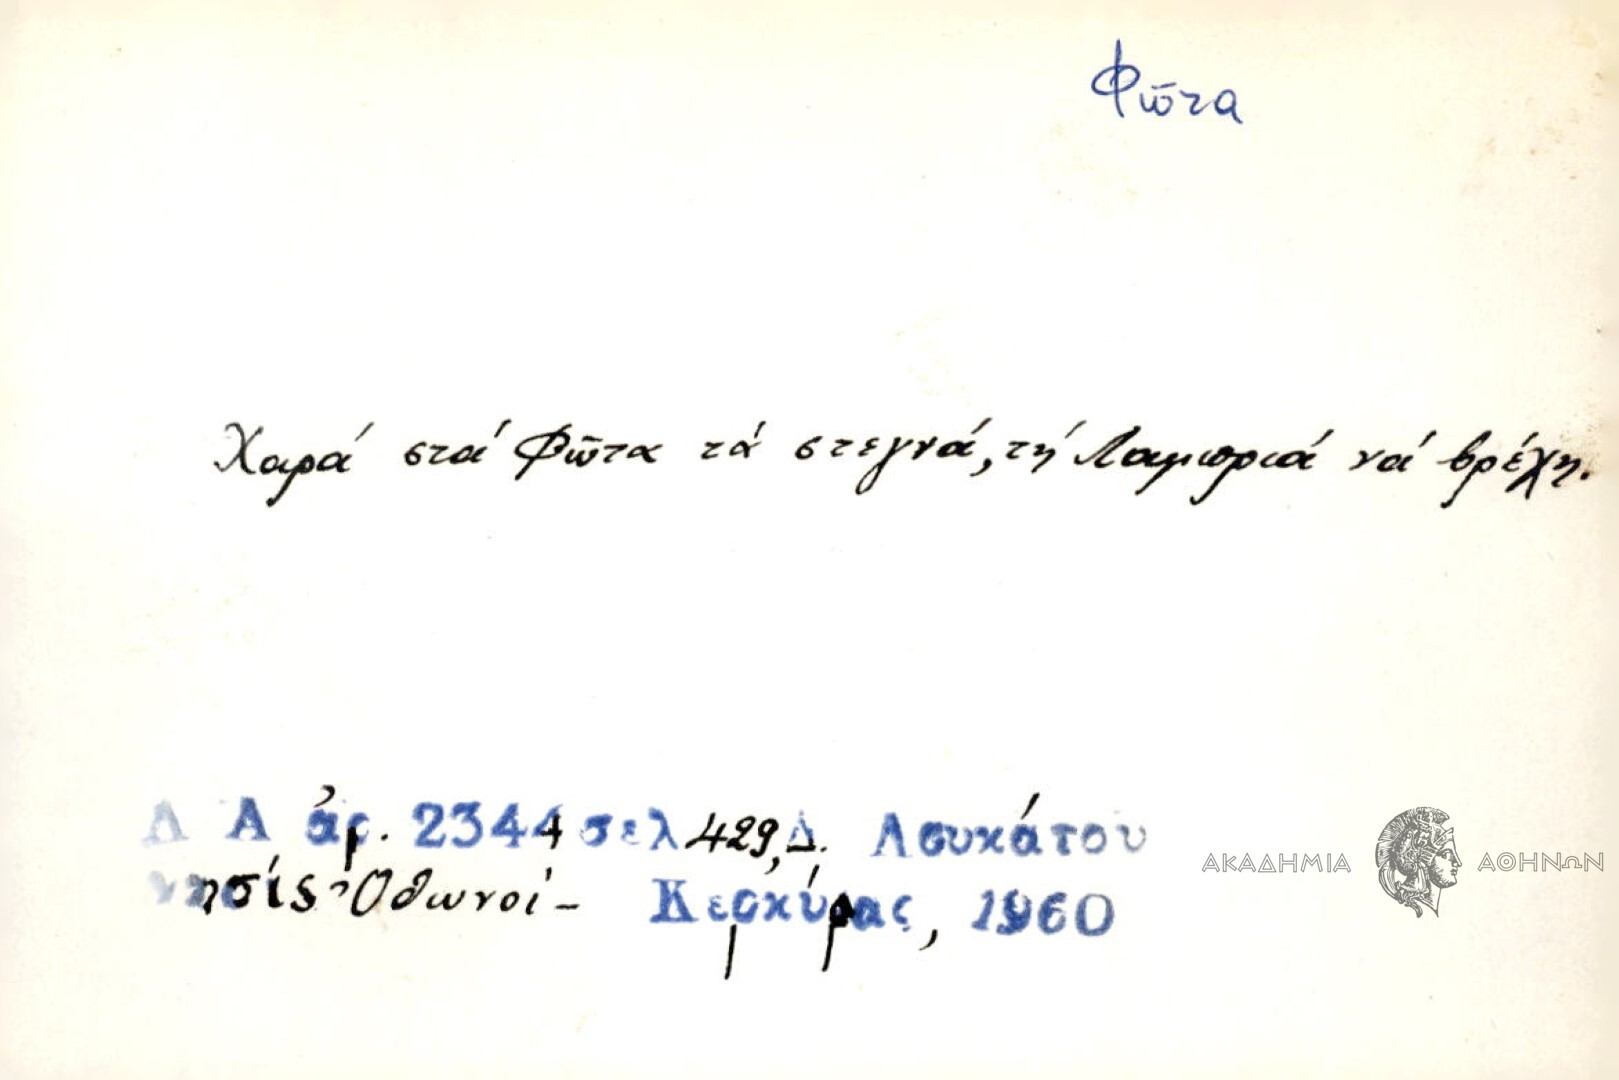 Φῶτα
Χαρά στά Φῶτα τά στεγνά, τή Λαμπριά νά βρέχη.
Λ Α ἀρ. 2344 σελ 429, Δ. Λουκάτου
νησίς Ὀθωνοί - Κερκύρας, 1960
ΑΚΑΔΗΜΙΑ ΑΘΗΝΩΝ